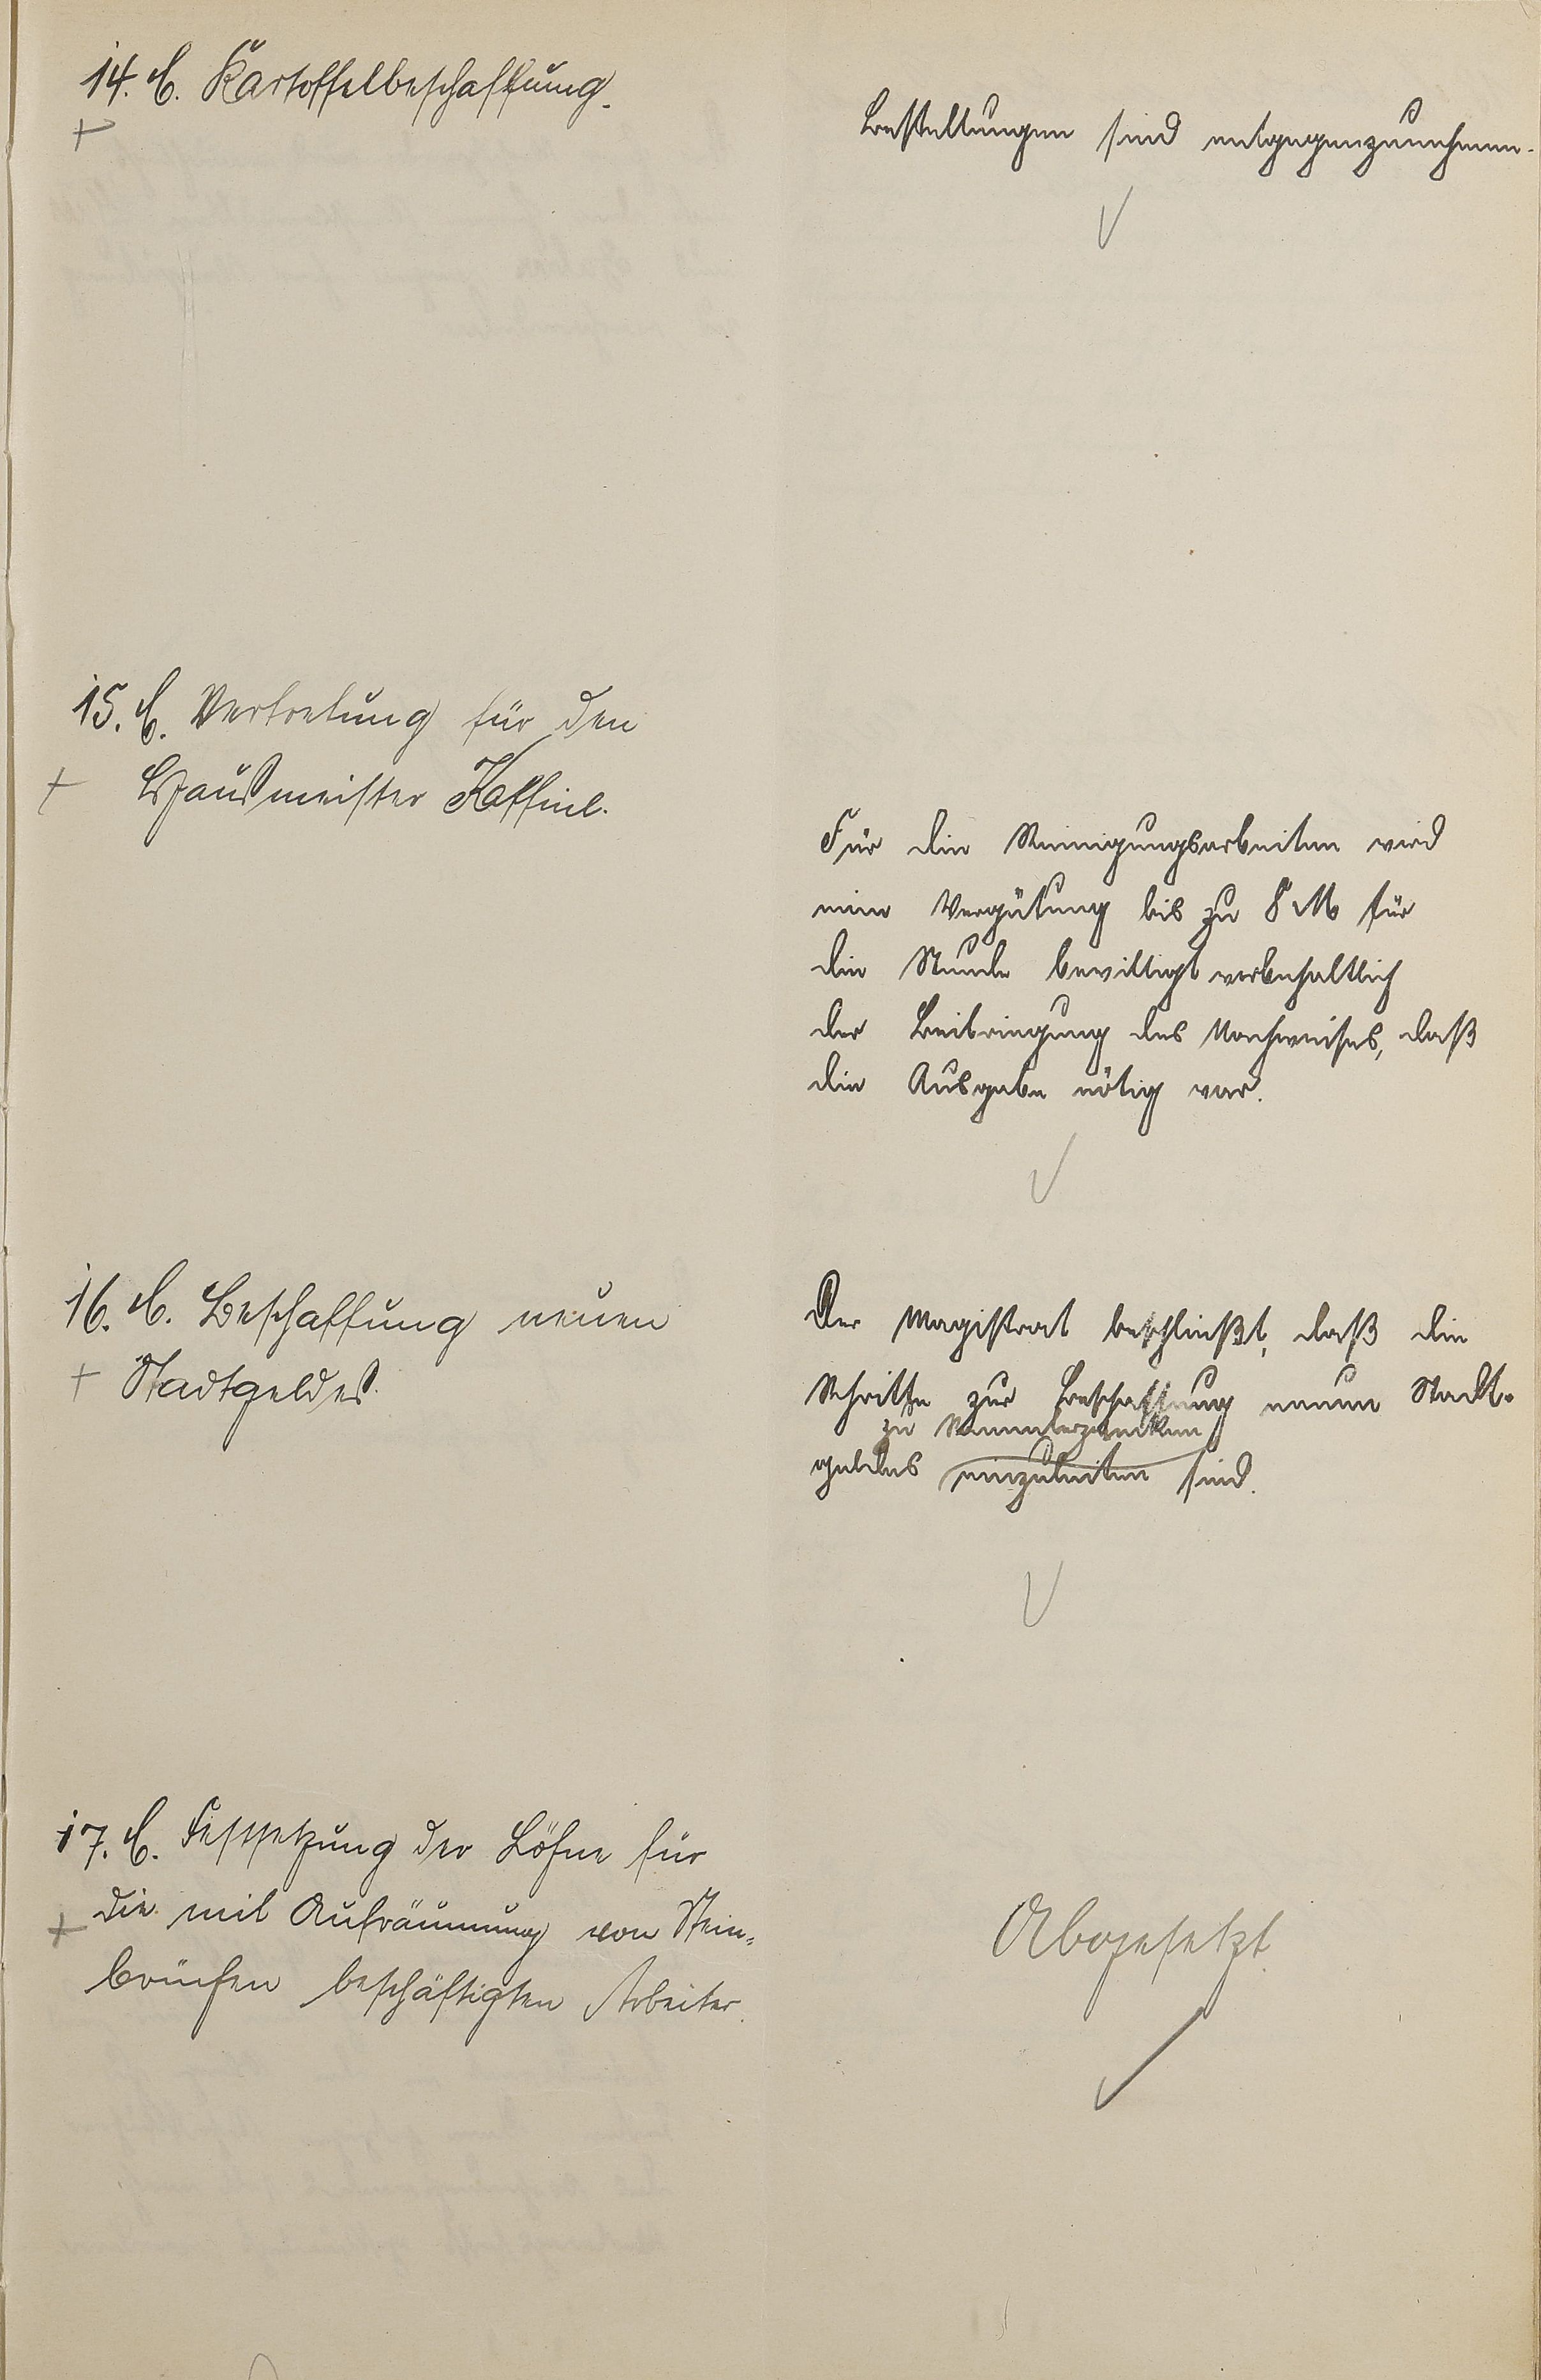 14. C. Kartoffelbeschaffung.
Bestellungen sind entgegenzunehmen.
15. C. Vertretung für den
Hausmeister
Für die Reinigungsarbeiten wird
eine Vergütung bis zu 8 M für
die Stunde bewilligt vorbehaltlich
der Beibringung des Nachweises, daß
die Ausgabe nötig war.
16. C. Beschaffung neuen
Stadtgeldes.
Der Magistrat beschließt, daß die
Schritte zur Beschaffung neuen Stadt-
zu Sammlerzwecken
geldes einzuleiten sind.
17. C. Festsetzung der Löhne für
die mit Aufräumung von Stein-
brüchen beschäftigten Arbeiter.
Abgesetzt.